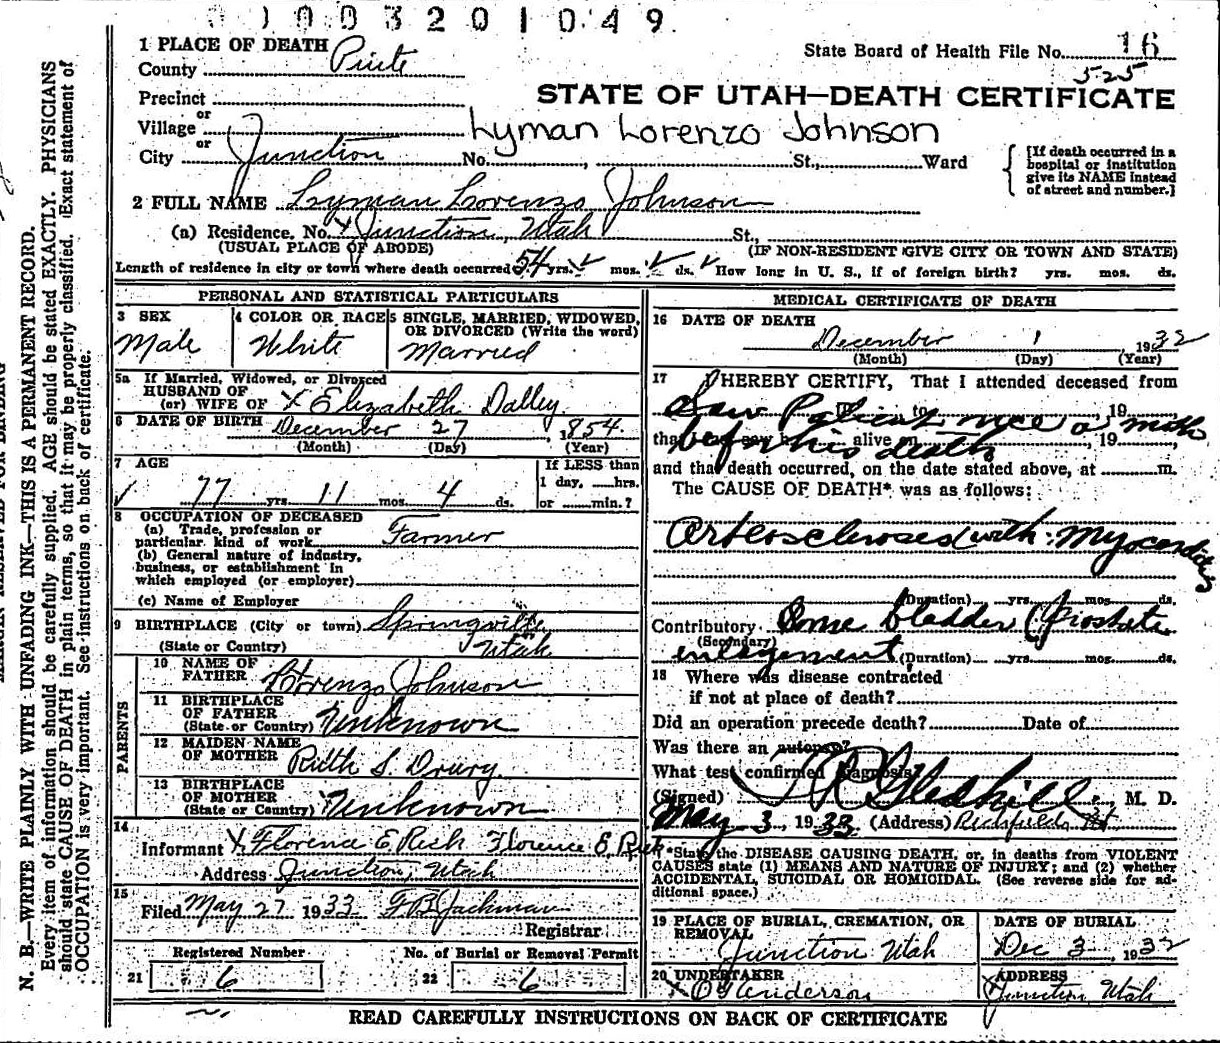 1003201049
1 PLACE OF DEATH
State Board of Health File No. 16
525
County Piute
Precinct
or
Village
or
City Junction No. , St., Ward
STATE OF UTAH—DEATH CERTIFICATE
Lyman Lorenzo Johnson
[If death occurred in a
hospital or institution
give its NAME instead
of street and number.]
2 FULL NAME Lyman Lorenzo Johnson
(a) Residence. No. Junction, Utah St.,
(USUAL PLACE OF ABODE) (IF NON-RESIDENT GIVE CITY OR TOWN AND STATE)
Length of residence in city or town where death occurred 54 yrs. mos. ds. How long in U. S., if of foreign birth? yrs. mos. ds.
PERSONAL AND STATISTICAL PARTICULARS
3 SEX
Male
4 COLOR OR RACE
White
5 SINGLE, MARRIED, WIDOWED,
OR DIVORCED (Write the word)
Married
5a If Married, Widowed, or Divorced
HUSBAND OF
(or) WIFE OF X Elizabeth Dalley
6 DATE OF BIRTH December 27 1854
(Month) (Day) (Year)
7 AGE
77 yrs. 11 mos. 4 ds.
If LESS than
1 day, hrs.
or min.?
8 OCCUPATION OF DECEASED
(a) Trade, profession or
particular kind of work Farmer
(b) General nature of industry,
business, or establishment in
which employed (or employer)
(c) Name of Employer
9 BIRTHPLACE (City or town) Springville
(State or Country) Utah
PARENTS
10 NAME OF
FATHER Lorenzo Johnson
11 BIRTHPLACE
OF FATHER
(State or Country) Unknown
12 MAIDEN NAME
OF MOTHER Ruth S. Drury
13 BIRTHPLACE
OF MOTHER
(State or Country) Unknown
14
Informant X Florence E. Rich Florence E. Rich
Address Junction, Utah
15
Filed May 27 1933 F B Jackman
Registrar
Registered Number No. of Burial or Removal Permit
21 6 22 6
MEDICAL CERTIFICATE OF DEATH
16 DATE OF DEATH
December 1 1932
(Month) (Day) (Year)
17 I HEREBY CERTIFY, That I attended deceased from
to , 19
Saw Patient once a month
that alive on , 19
before his death
and that death occurred, on the date stated above, at m.
The CAUSE OF DEATH* was as follows:
Arteoscleroses with Myocarditis
(Duration) yrs. mos. ds.
Contributory Some bladder (Prostate
(Secondary)
enlargement (Duration) yrs. mos. ds.
18 Where was disease contracted
if not at place of death?
Did an operation precede death? Date of
Was there an autopsy?
What test confirmed diagnosis?
(Signed) T R Gledhill, M. D.
May 3, 1933 (Address) Richfield Ut
*State the DISEASE CAUSING DEATH, or, in deaths from VIOLENT
CAUSES state (1) MEANS AND NATURE OF INJURY; and (2) whether
ACCIDENTAL, SUICIDAL OR HOMICIDAL. (See reverse side for ad-
ditional space.)
19 PLACE OF BURIAL, CREMATION, OR
REMOVAL
Junction Utah
DATE OF BURIAL
Dec 3, 1932
20 UNDERTAKER
ADDRESS
Junction, Utah
READ CAREFULLY INSTRUCTIONS ON BACK OF CERTIFICATE
N. B.—WRITE PLAINLY WITH UNFADING INK—THIS IS A PERMANENT RECORD.
Every item of information should be carefully supplied. AGE should be stated EXACTLY. PHYSICIANS
should state CAUSE OF DEATH in plain terms, so that it may be properly classified. Exact statement of
OCCUPATION is very important. See instructions on back of certificate.